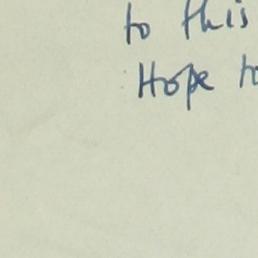 to this
Hope to